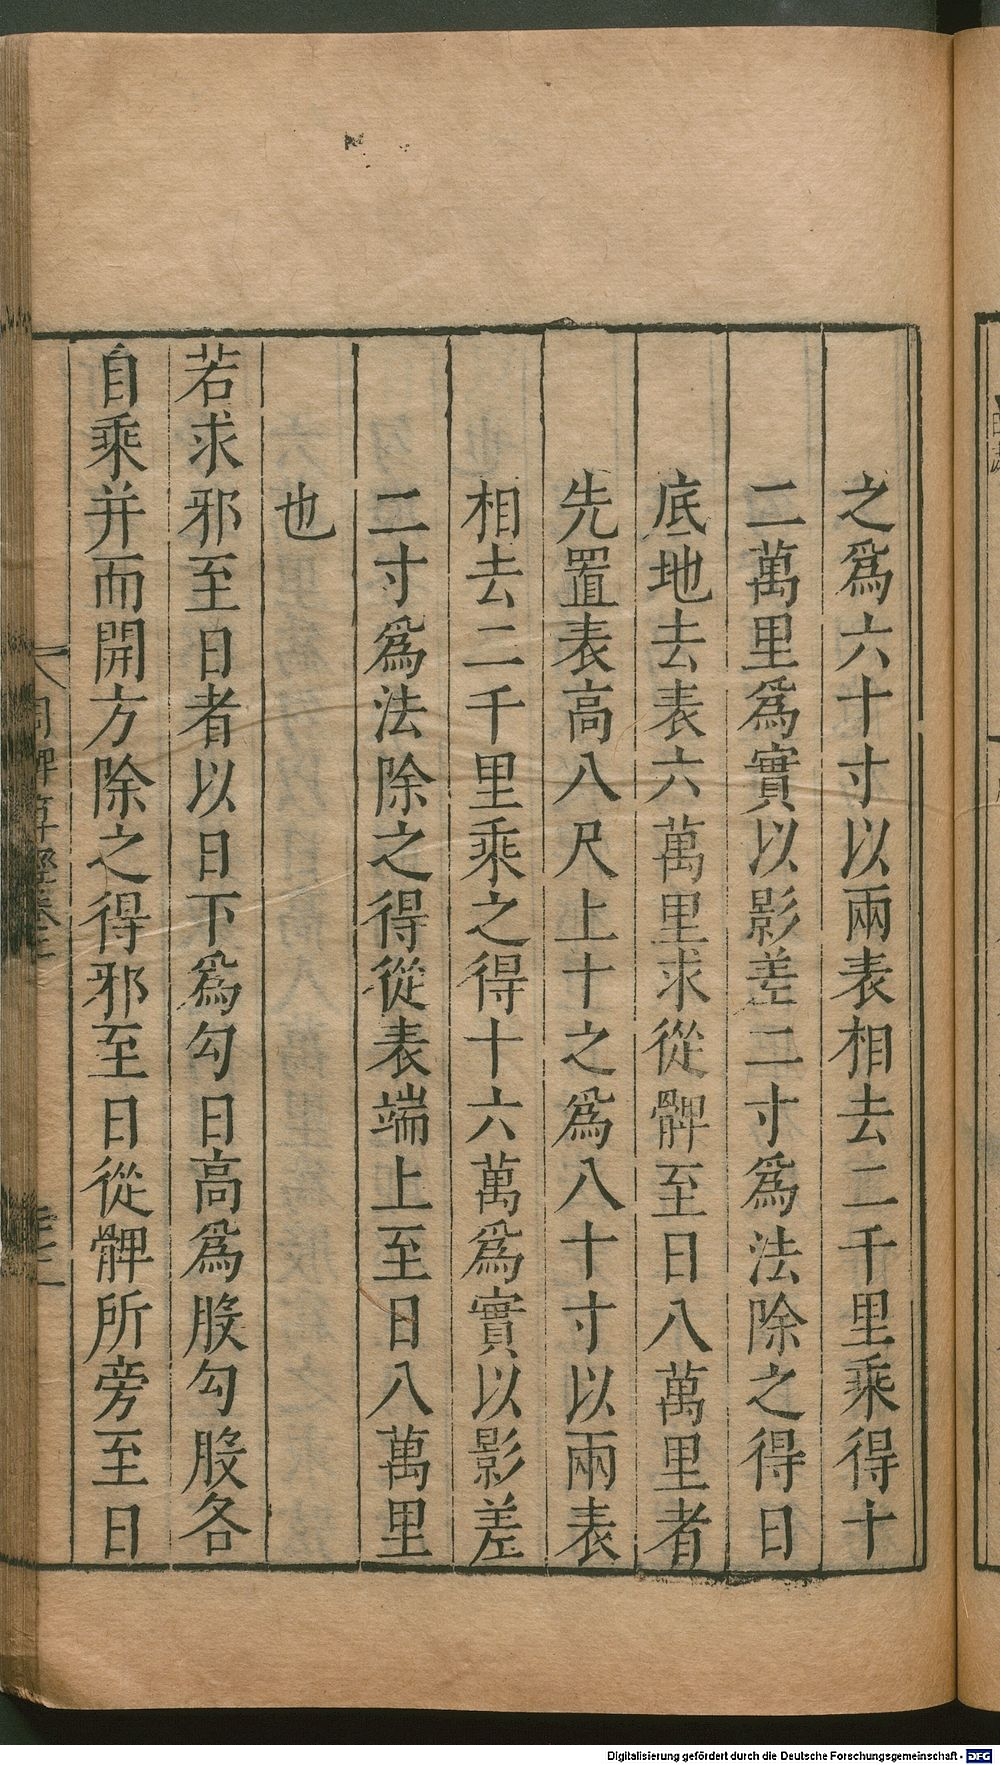 之爲六十寸以兩表相去二千里乘得十
二萬里爲實以影差二寸爲法除之得日
底地去表六萬里求從髀至日八萬里者
先置表高八尺上十之爲八十寸以兩表
相去二千里乘之得十六萬爲實以影差
二寸爲法除之得從表端上至日八萬里
也
若求邪至日者以日下爲勾日高爲股勾股各
自乘并而開方除之得邪至日從髀所旁至日
周髀算經卷上
Digitalisierung gefördert durch die Deutsche Forschungsgemeinschaft - DFG